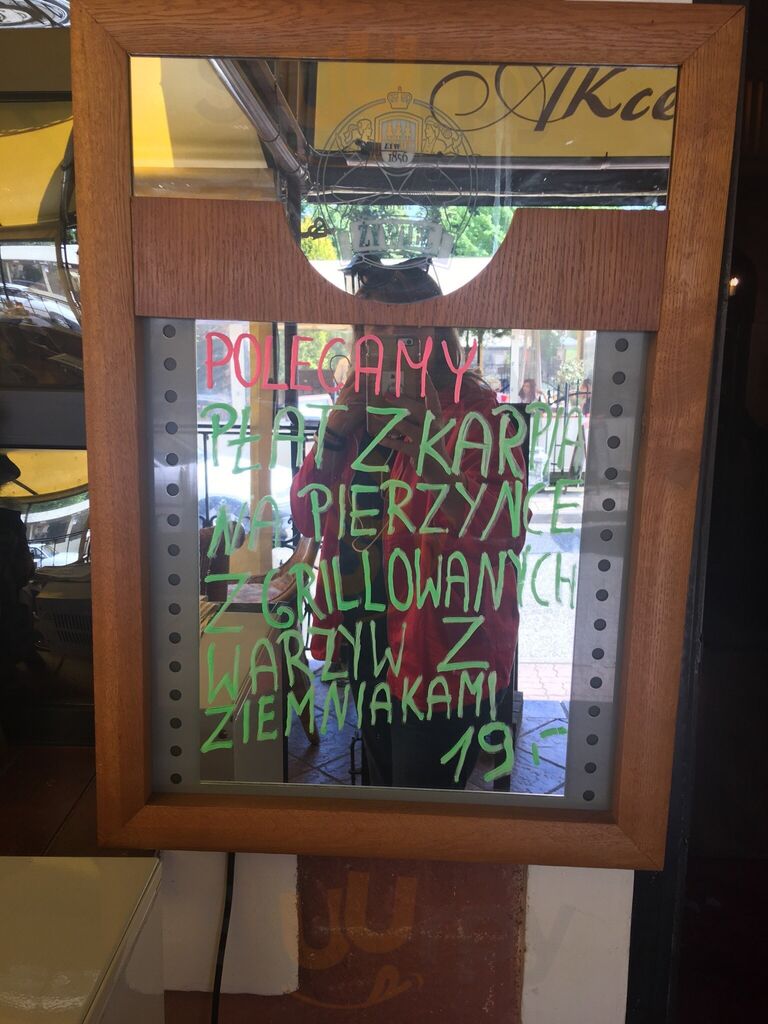 AKce
ŻYW
1856
ŻYWIEC
POLECAMY
PŁAT Z KARPIA
NA PIERZYNCE
Z GRILLOWANYCH
WARZYW Z
ZIEMNIAKAMI
19,-